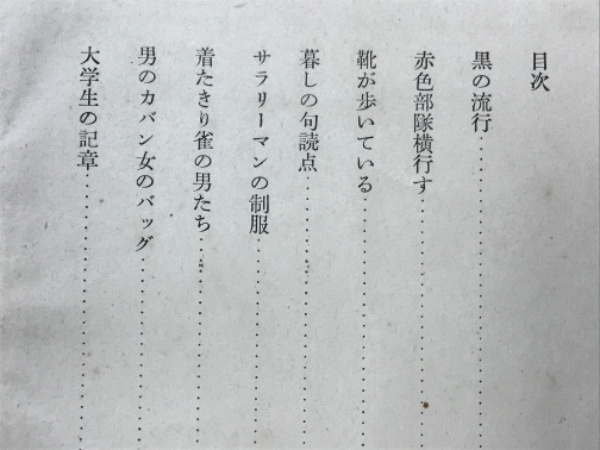 目次
黒の流行
赤色部隊横行す
靴が歩いている
暮しの句読点
サラリーマンの制服
着たきり雀の男たち
男のカバン女のバッグ
大学生の記章